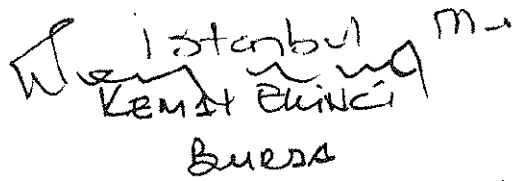 istanbul m.
KEMAL EKİNCİ
BURSA